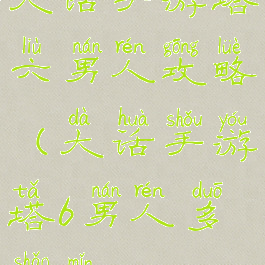 大话手游塔
liù nán rén gōng lüè
六男人攻略
dà huà shǒu yóu
(大话手游
tǎ nán rén duō
塔6男人多